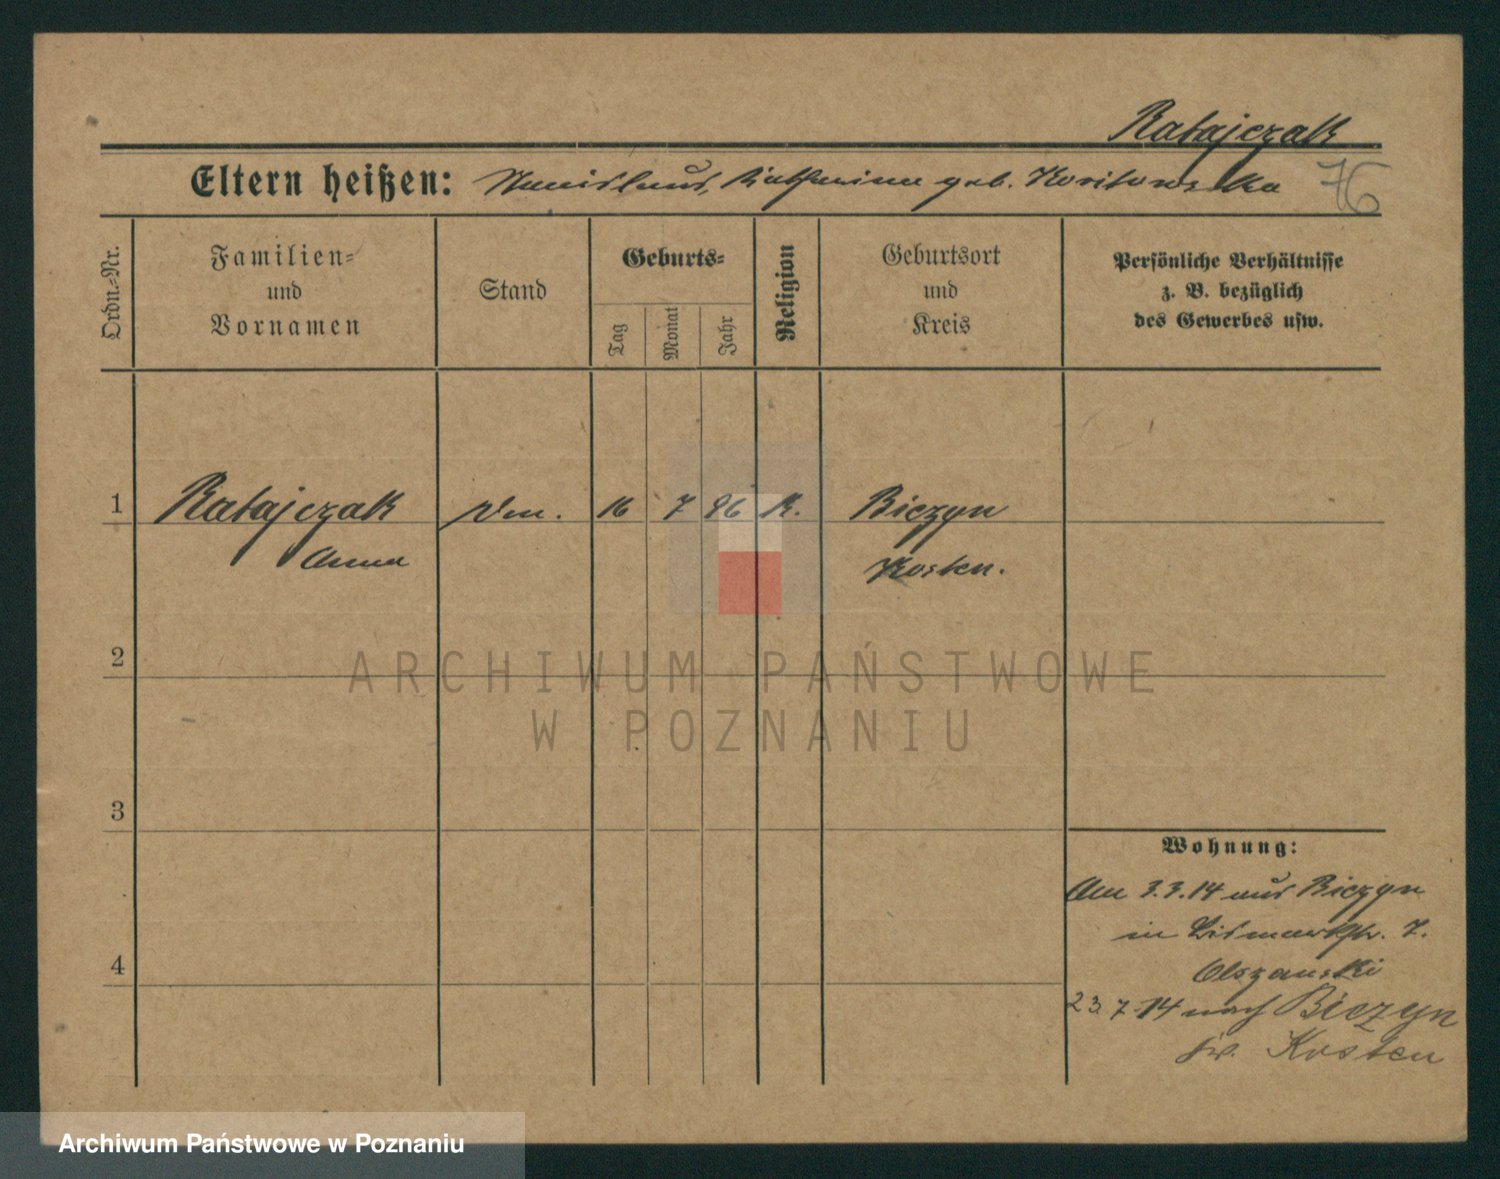 Ratajczak
Eltern heißen: Stanislaus, Katharina geb. Koritowska
76
Ordn.-Nr.
Familien-
und
Vornamen
Stand
Geburts-
Tag
Monat
Jahr
Religion
Geburtsort
und
Kreis
Persönliche Verhältnisse
z. B. bezüglich
des Gewerbes usw.
1
Ratajczak
Anna
16
7
K.
Biczyn
Kosten.
2
ARCHIWUM PAŃSTWOWE
W POZNANIU
3
Wohnung:
Am 3.3.14 aus Biczyn
in Bismarkstr. 7.
Olszanski
4
23.7.14 nach Biczyn
Kr. Kosten
Archiwum Państwowe w Poznaniu